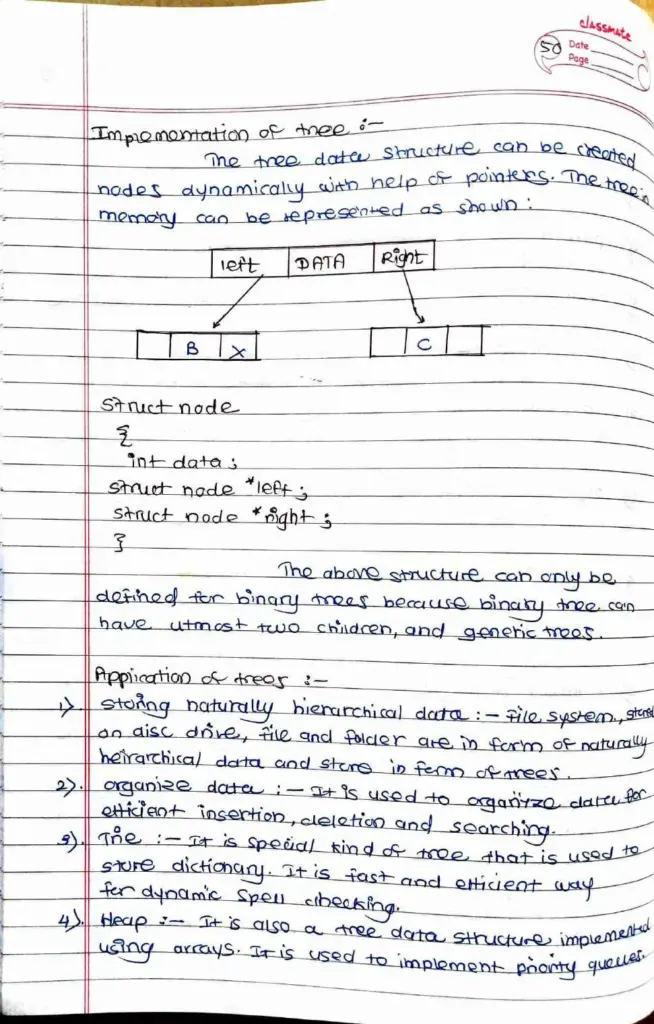 classmate
50 Date
Page
Implementation of tree :-
The tree data structure can be created
nodes dynamically with help of pointers. The tree in
memory can be represented as shown :
left DATA Right
B X C
struct node
{
int data ;
struct node *left ;
struct node *right ;
}
The above structure can only be
defined for binary trees because binary tree can
have utmost two children, and generic trees.
Application of trees :-
1). storing naturally hierarchical data :- file system, stored
on disc drive, file and folder are in form of naturally
heirarchical data and store in form of trees.
2). organize data :- It is used to organize data for
efficient insertion, deletion and searching.
3). Trie :- It is special kind of tree that is used to
store dictionary. It is fast and efficient way
for dynamic spell checking.
4). Heap :- It is also a tree data structure implemented
using arrays. It is used to implement priority queues.